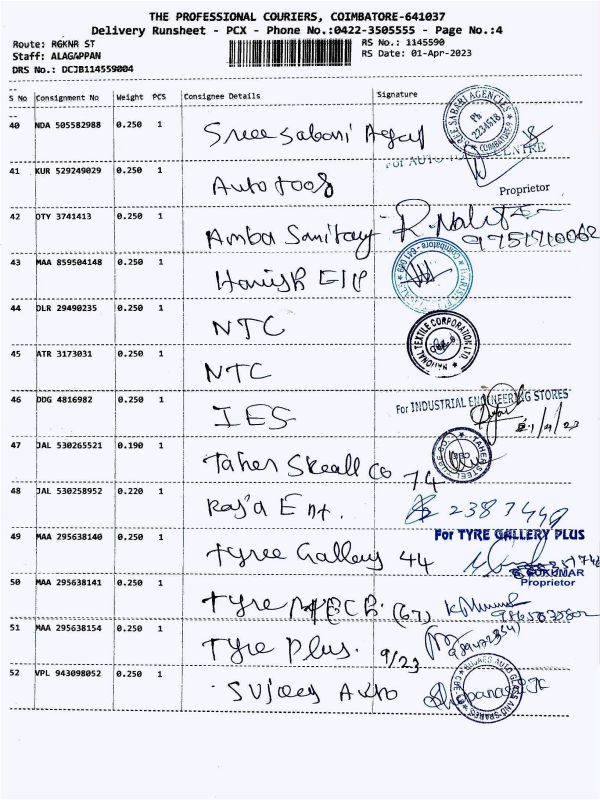 THE PROFESSIONAL COURIERS, COIMBATORE-641037
Delivery Runsheet - PCX - Phone No.:0422-3505555 - Page No.:4
Route: RGKNR ST
RS No.: 1145590
Staff: ALAGAPPAN
RS Date: 01-Apr-2023
DRS No.: DCJB114559004
S No Consignment No Weight PCS Consignee Details Signature
40 NDA 505582988 0.250 1 Sree Sabari
SREE SABARI AGENCIES
Ph 2234518
COIMBATORE
41 KUR 529249029 0.250 1
For AUTO CENTRE
Proprietor
42 OTY 3741413 0.250 1 Amba Sanitary
9751710062
43 MAA 859504148 0.250 1 Harish
Coimbatore - 641 009
44 DLR 29490235 0.250 1 NTC
NATIONAL TEXTILE CORPORATION LTD.
45 ATR 3173031 0.250 1 NTC
46 DDG 4816982 0.250 1 IES
For INDUSTRIAL ENGINEERING STORES
21/4/23
47 JAL 530265521 0.190 1 Taher Co 74
TAHER STEEL
48 JAL 530258952 0.220 1 Raja Ent.
2387449
49 MAA 295638140 0.250 1 Tyree Gallery 44
For TYRE GALLERY PLUS
GOKUMAR
Proprietor
50 MAA 295638141 0.250 1 Tyre (67)
51 MAA 295638154 0.250 1 Tyre Plus. 9/23
52 VPL 943098052 0.250 1 Sujaes Auto
SUJAES AUTO GLASS AND SPARES